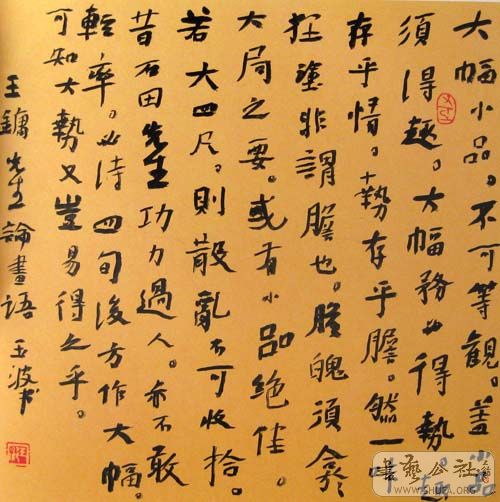 大幅小品。不可等觀。蓋小品
須得趣。大幅務必得勢。趣
存乎情。勢存乎膽。然一味
狂塗非謂膽也。膽魄須
大局之要。或有小品絕佳。
若大四尺。則散亂不可收拾。
昔石田先生功力過人。亦不敢
輕率。必待四旬後方作大幅。
可知大勢又豈易得之乎。
王鏞先生論畫語 玉波书
書藝公社
WWW.SHUFA.ORG